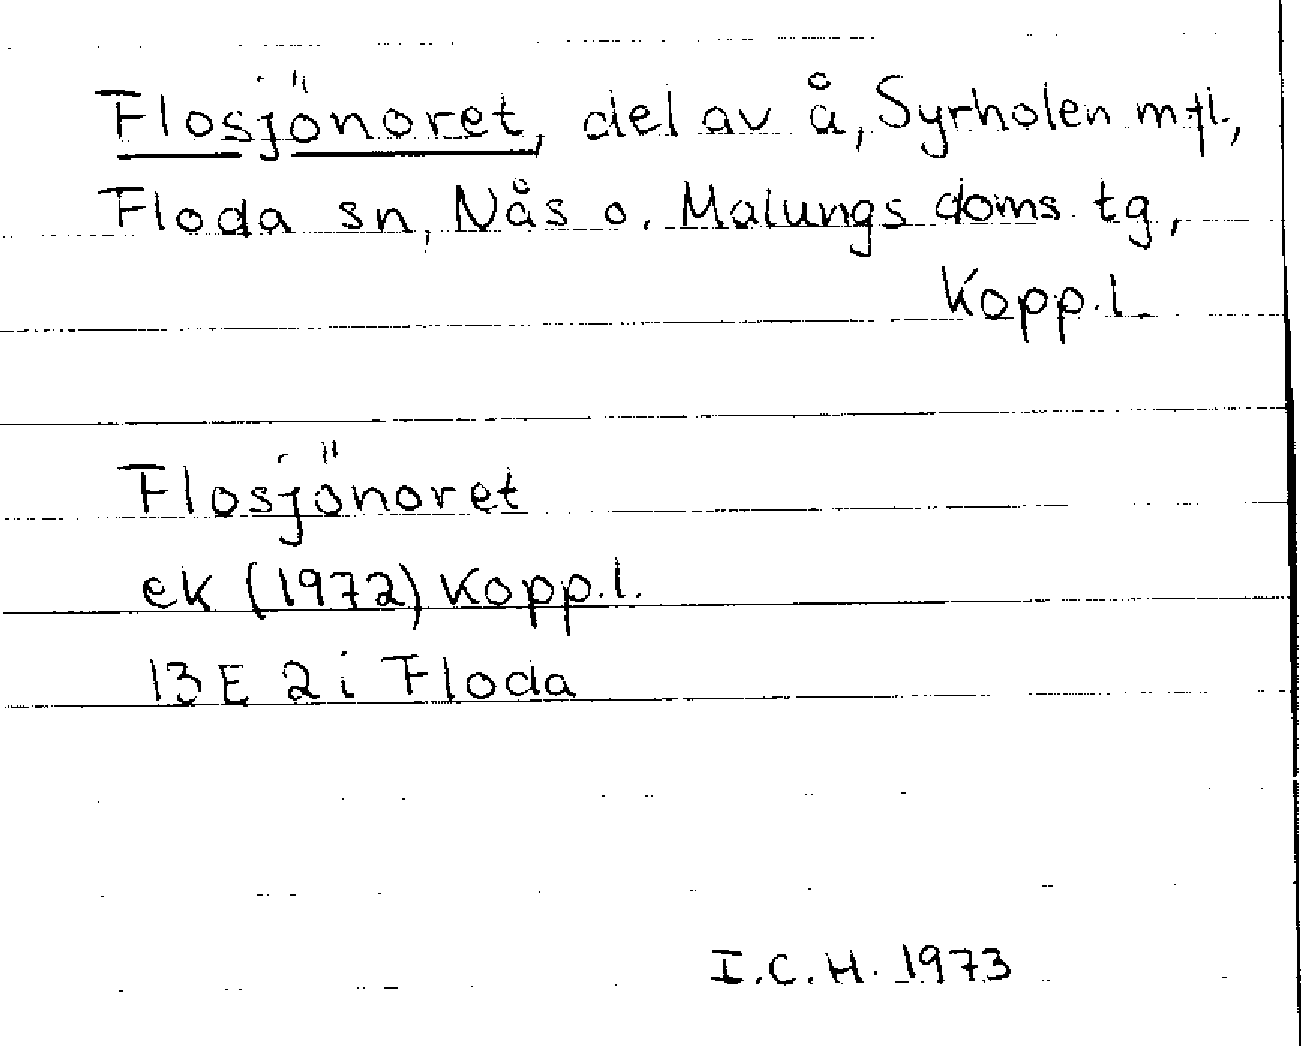 Flosjönoret, del av å, Syrholen m.fl.,
Floda sn, Nås o. Malungs doms. tg,
Kopp.l.
Flosjönoret
ek (1972) Kopp.l.
13E 2i Floda
I.C.H. 1973